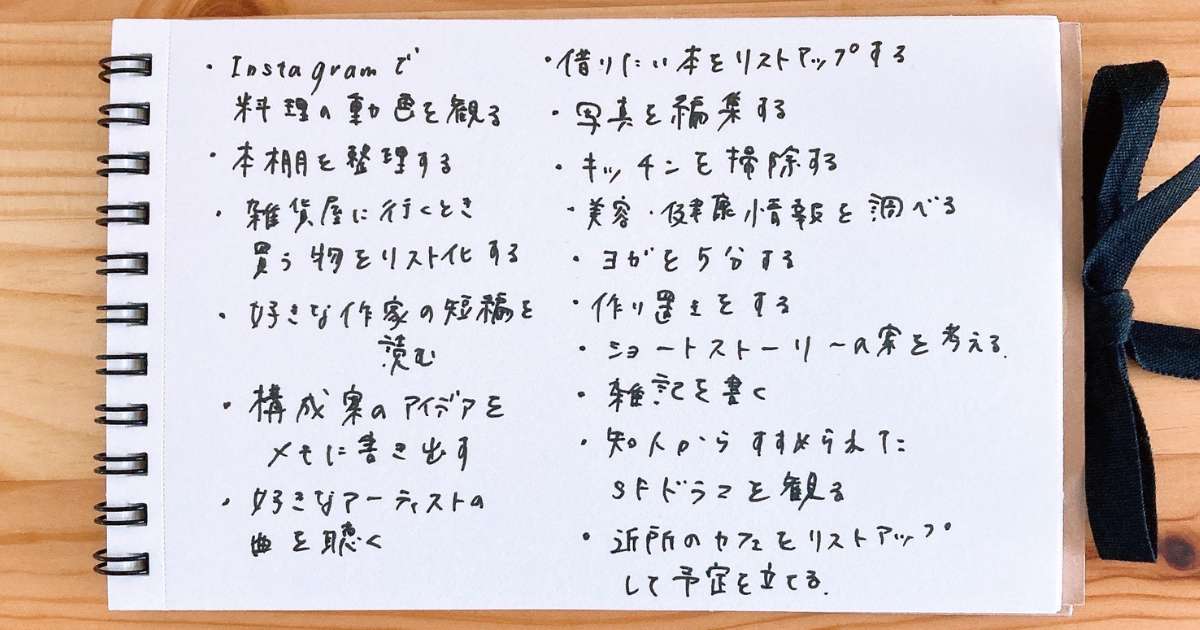 ・Instagramで
料理の動画を観る
・本棚を整理する
・雑貨屋に行くとき
買う物をリスト化する
・好きな作家の短編を
読む
・構成案のアイデアを
メモに書き出す
・好きなアーティストの
曲を聴く
・借りたい本をリストアップする
・写真を編集する
・キッチンを掃除する
・美容・健康情報を調べる
・ヨガを5分する
・作り置きをする
・ショートストーリーの案を考える.
・雑記を書く
・知人からすすめられた
SFドラマを観る
・近所のカフェをリストアップ
して予定を立てる.